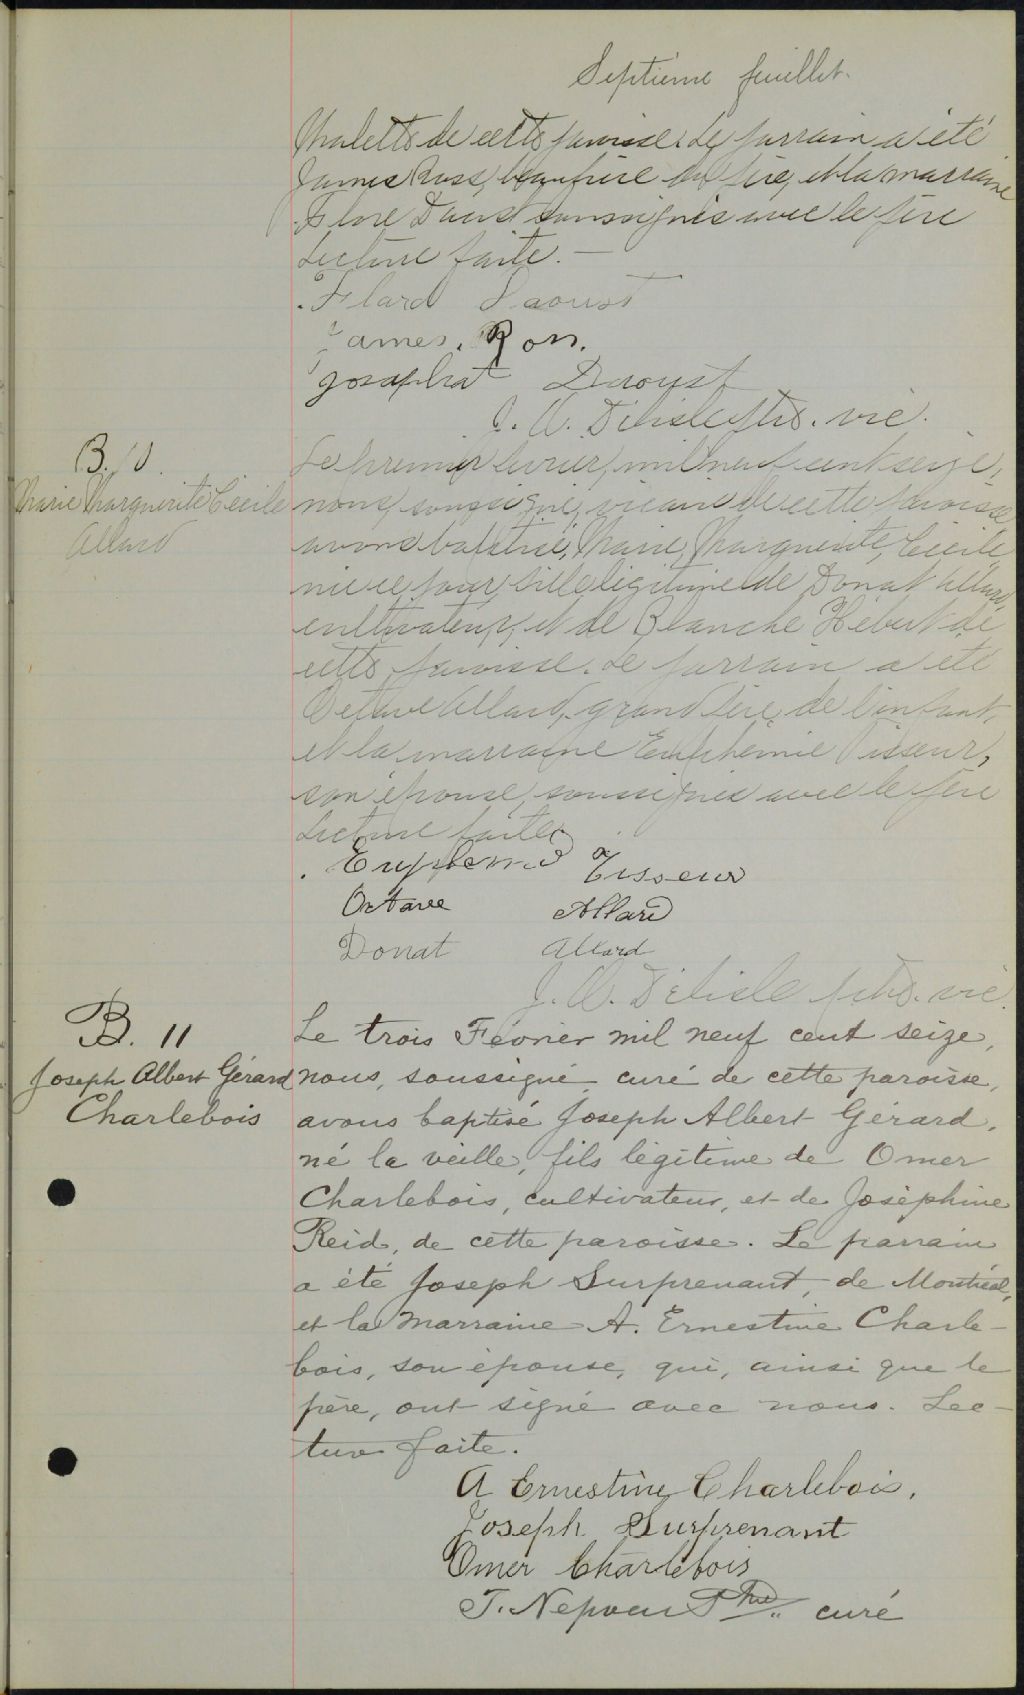 Septième feuillet.
de cette paroisse. Le parrain a été
James Ross, beaufrère du père, et la marraine
Flore Daoust soussignés avec le père
Lecture faite. —
Flard Daoust
James. Ross.
Josaphat Daoust
J. A. Délisle ptre. vic.
B. 10.
Marie Marguerite Cécile
Allard
Le premier février, mil neuf cent seize,
nous, soussigné, vicaire de cette paroisse
avons baptisé, Marie, Marguerite, Cécile
née ce jour, fille légitime de Donat Allard,
cultivateur, et de Blanche Hébert de
cette paroisse. Le parrain a été
Octave Allard, grand père, de l'enfant,
et la marraine Euphémie Tisseur,
son épouse, soussignés avec le père
Lecture faite.
Euphémie Tisseur
Octave Allard
Donat Allard
J. A. Délisle ptre. vic.
B. 11
Joseph Albert Gérard
Charlebois
Le trois Février mil neuf cent seize,
nous, soussigné curé de cette paroisse,
avons baptisé Joseph Albert Gérard,
né la veille, fils légitime de Omer
Charlebois, cultivateur, et de Joséphine
Reid, de cette paroisse. Le parrain
a été Joseph Surprenant, de Montréal,
et la Marraine A. Ernestine Charle-
bois, son épouse, qui, ainsi que le
père, ont signé avec nous. Lec-
ture faite.
A Ernestine Charlebois,
Joseph Surprenant
Omer Charlebois
T. Nepveu Ptre curé